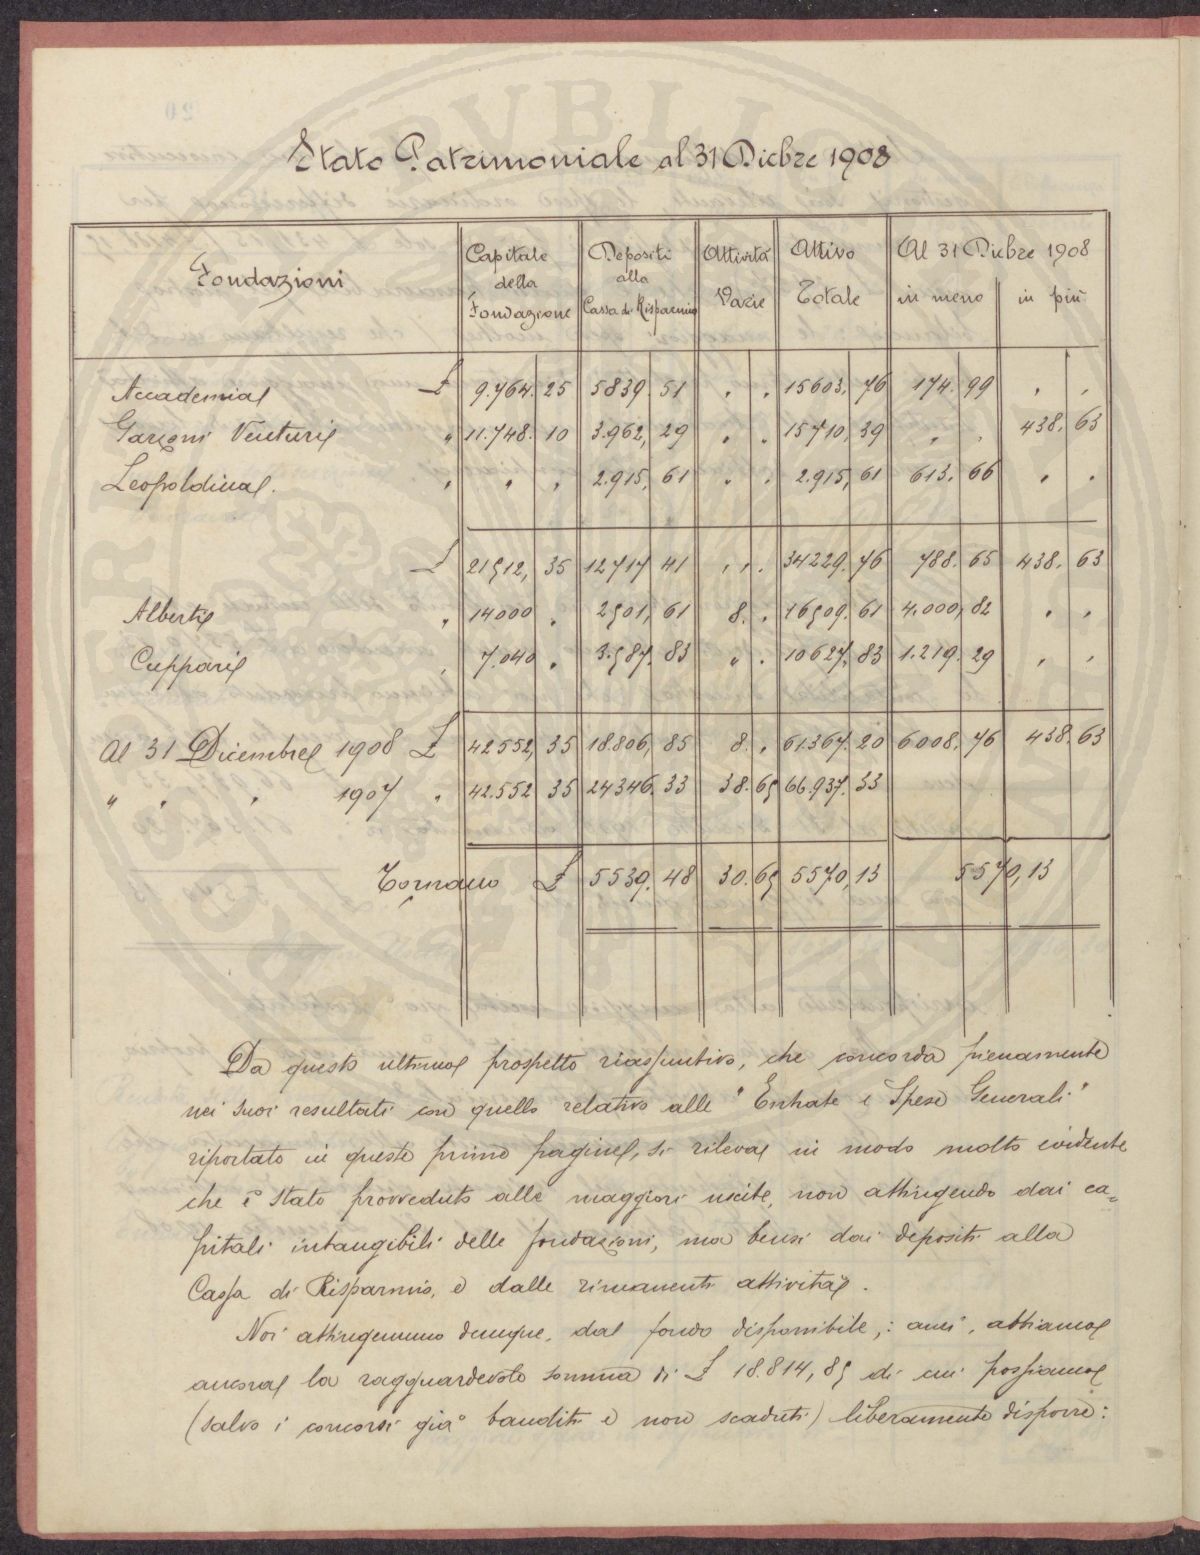 Stato Patrimoniale al 31 Dicbre 1908
Fondazioni | Capitale della Fondazione | Depositi alla Cassa di Risparmio | Attività Varie | Attivo Totale | Al 31 Dicbre 1908 in meno | in più
Accademia £ 9.764. 25 5839. 51 " " 15603. 76 174. 99 " "
Garzoni Venturi " 11.748. 10 3.962, 29 " " 15710, 39 " " 438. 63
Leopoldina. " " " 2.915, 61 " " 2.915, 61 613. 66 " "
£ 21512, 35 12717 41 " " 34229. 76 788. 65 438. 63
Alberti " 14000 " 2501, 61 8. " 16509. 61 4.000, 82 " "
Cuppari " 7.040 " 3.587. 83 " " 10627. 83 1.219. 29 " "
Al 31 Dicembre 1908 £ 42552, 35 18.806, 85 8. " 61.367. 20 6008. 76 438. 63
" " " 1907 " 42.552 35 24346. 33 38. 65 66.937. 33
Tornano £ 5539. 48 30. 65 5570, 13 5570, 13
Da questo ultimo prospetto riassuntivo, che concorda pienamente
nei suoi resultati con quello relativo alle "Entrate e Spese Generali"
riportato in queste prime pagine, si rileva in modo molto evidente
che è stato provveduto alle maggiori uscite, non attingendo dai ca=
pitali intangibili delle fondazioni, ma bensì dai depositi alla
Cassa di Risparmio, e dalle rimanenti attività.
Noi attingemmo dunque, dal fondo disponibile,: anzi, abbiamo
ancora la ragguardevole somma di £ 18.814,85 di cui possiamo
(salvo i concorsi già banditi e non scaduti) liberamente disporre:
PVBLI